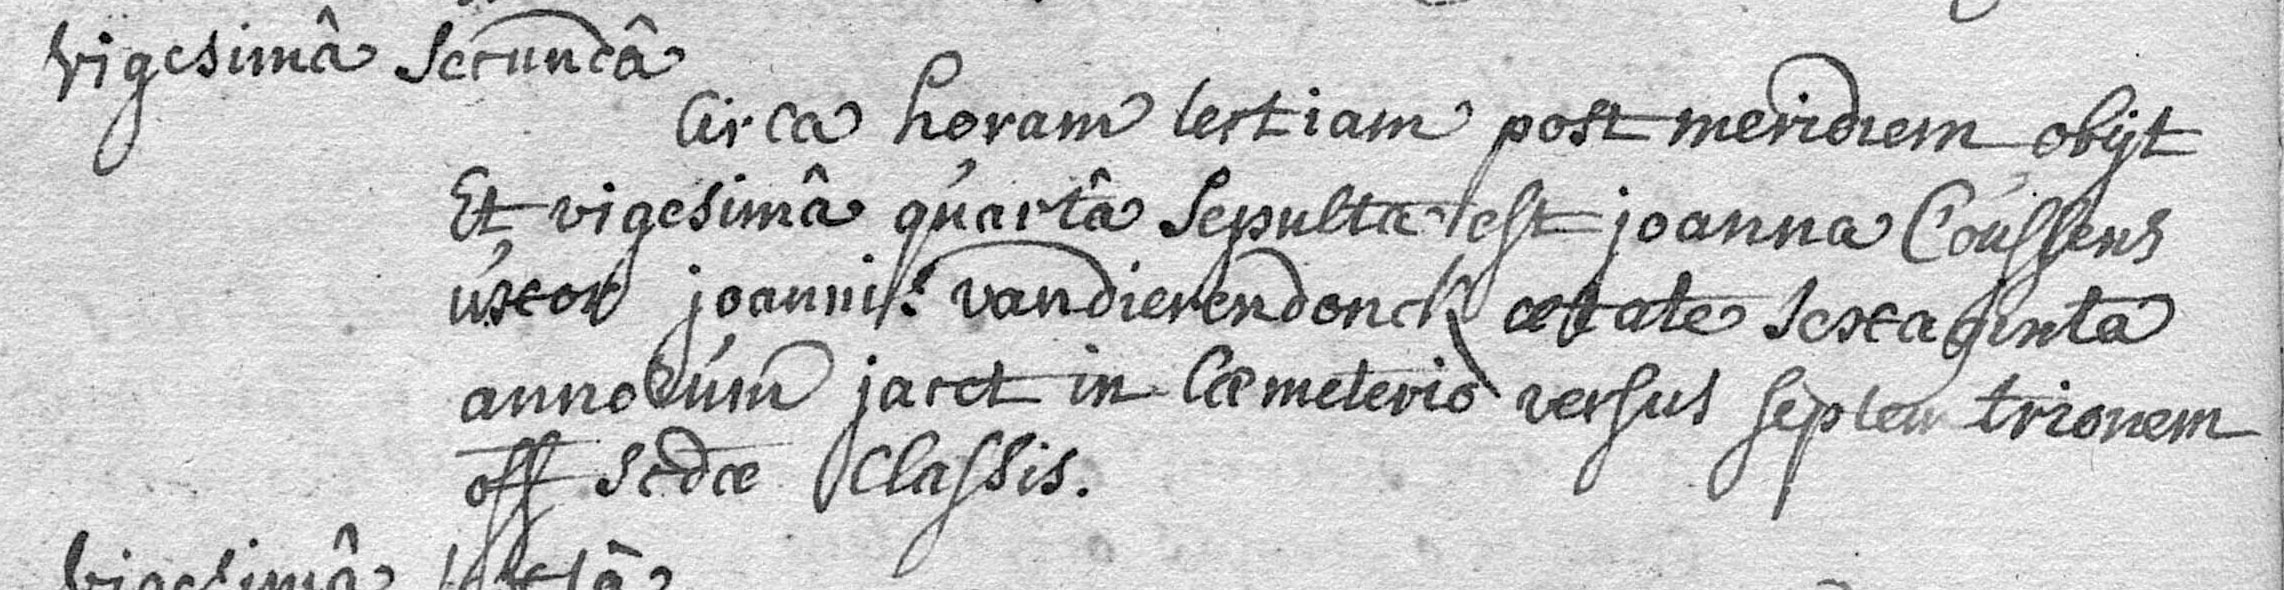 Vigesimâ secundâ
Circa horam tertiam post meridiem obijt
Et vigesimâ quartâ sepulta est joanna Coussens
uxor joannis vandierendonck ætate sexaginta
annorum jacet in Cæmeterio versus septemtrionem
off scdæ Classis.
vigesimâ sextâ